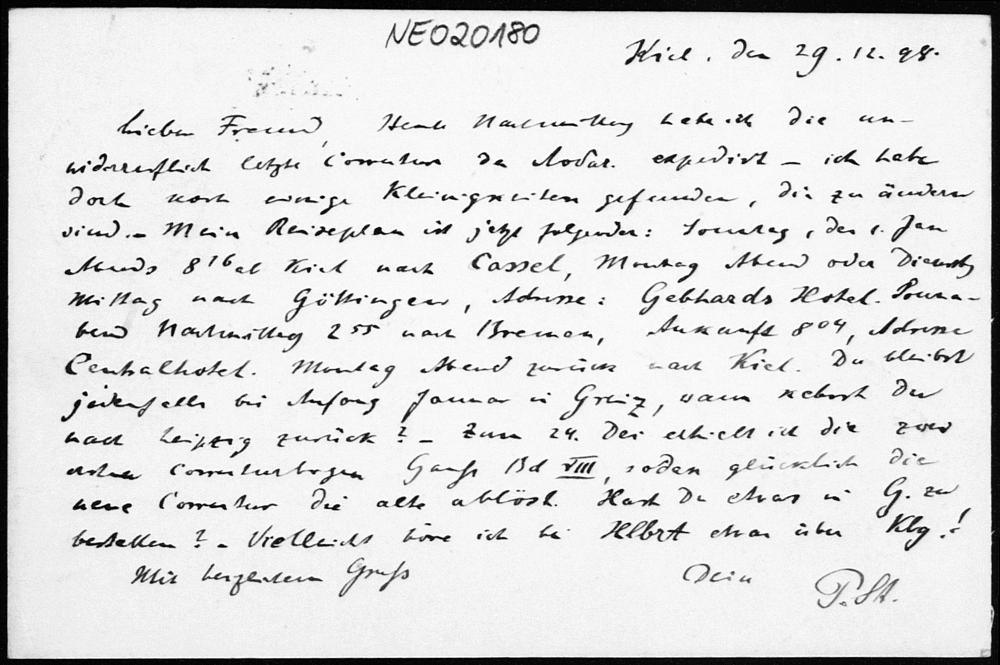 NEO20180
Kiel, den 29.12.98.
Lieber Freund, Heute Nachmittag habe ich die un-
widerruflich letzte Correctur der expedirt – ich habe
doch noch einige Kleinigkeiten gefunden, die zu ändern
sind. – Mein Reiseplan ist jetzt folgender: Sonntag, den 1. Jan
Abends 8 16 ab Kiel nach Cassel, Montag Abend oder Dienstag
Mittag nach Göttingen, Adresse: Gebhards Hotel. Sonna-
bend Nachmittag 2 55 nach Bremen, Ankunft 8 04, Adresse
Centralhotel. Montag Abend zurück nach Kiel. Du bleibst
jedenfalls bis Anfang Januar in Greiz, wann kehrst Du
nach Leipzig zurück? – Zum 24. Dec erhielt ich die zwei
ersten Correcturbogen Gauß Bd VIII, sodaß glücklich die
neue Correctur die alte ablöst. Hast Du etwas in G. zu
bestellen? – Vielleicht höre ich bei Hlbrt etwas über Kbg!
Mit herzlichem Gruß Dein P. St.